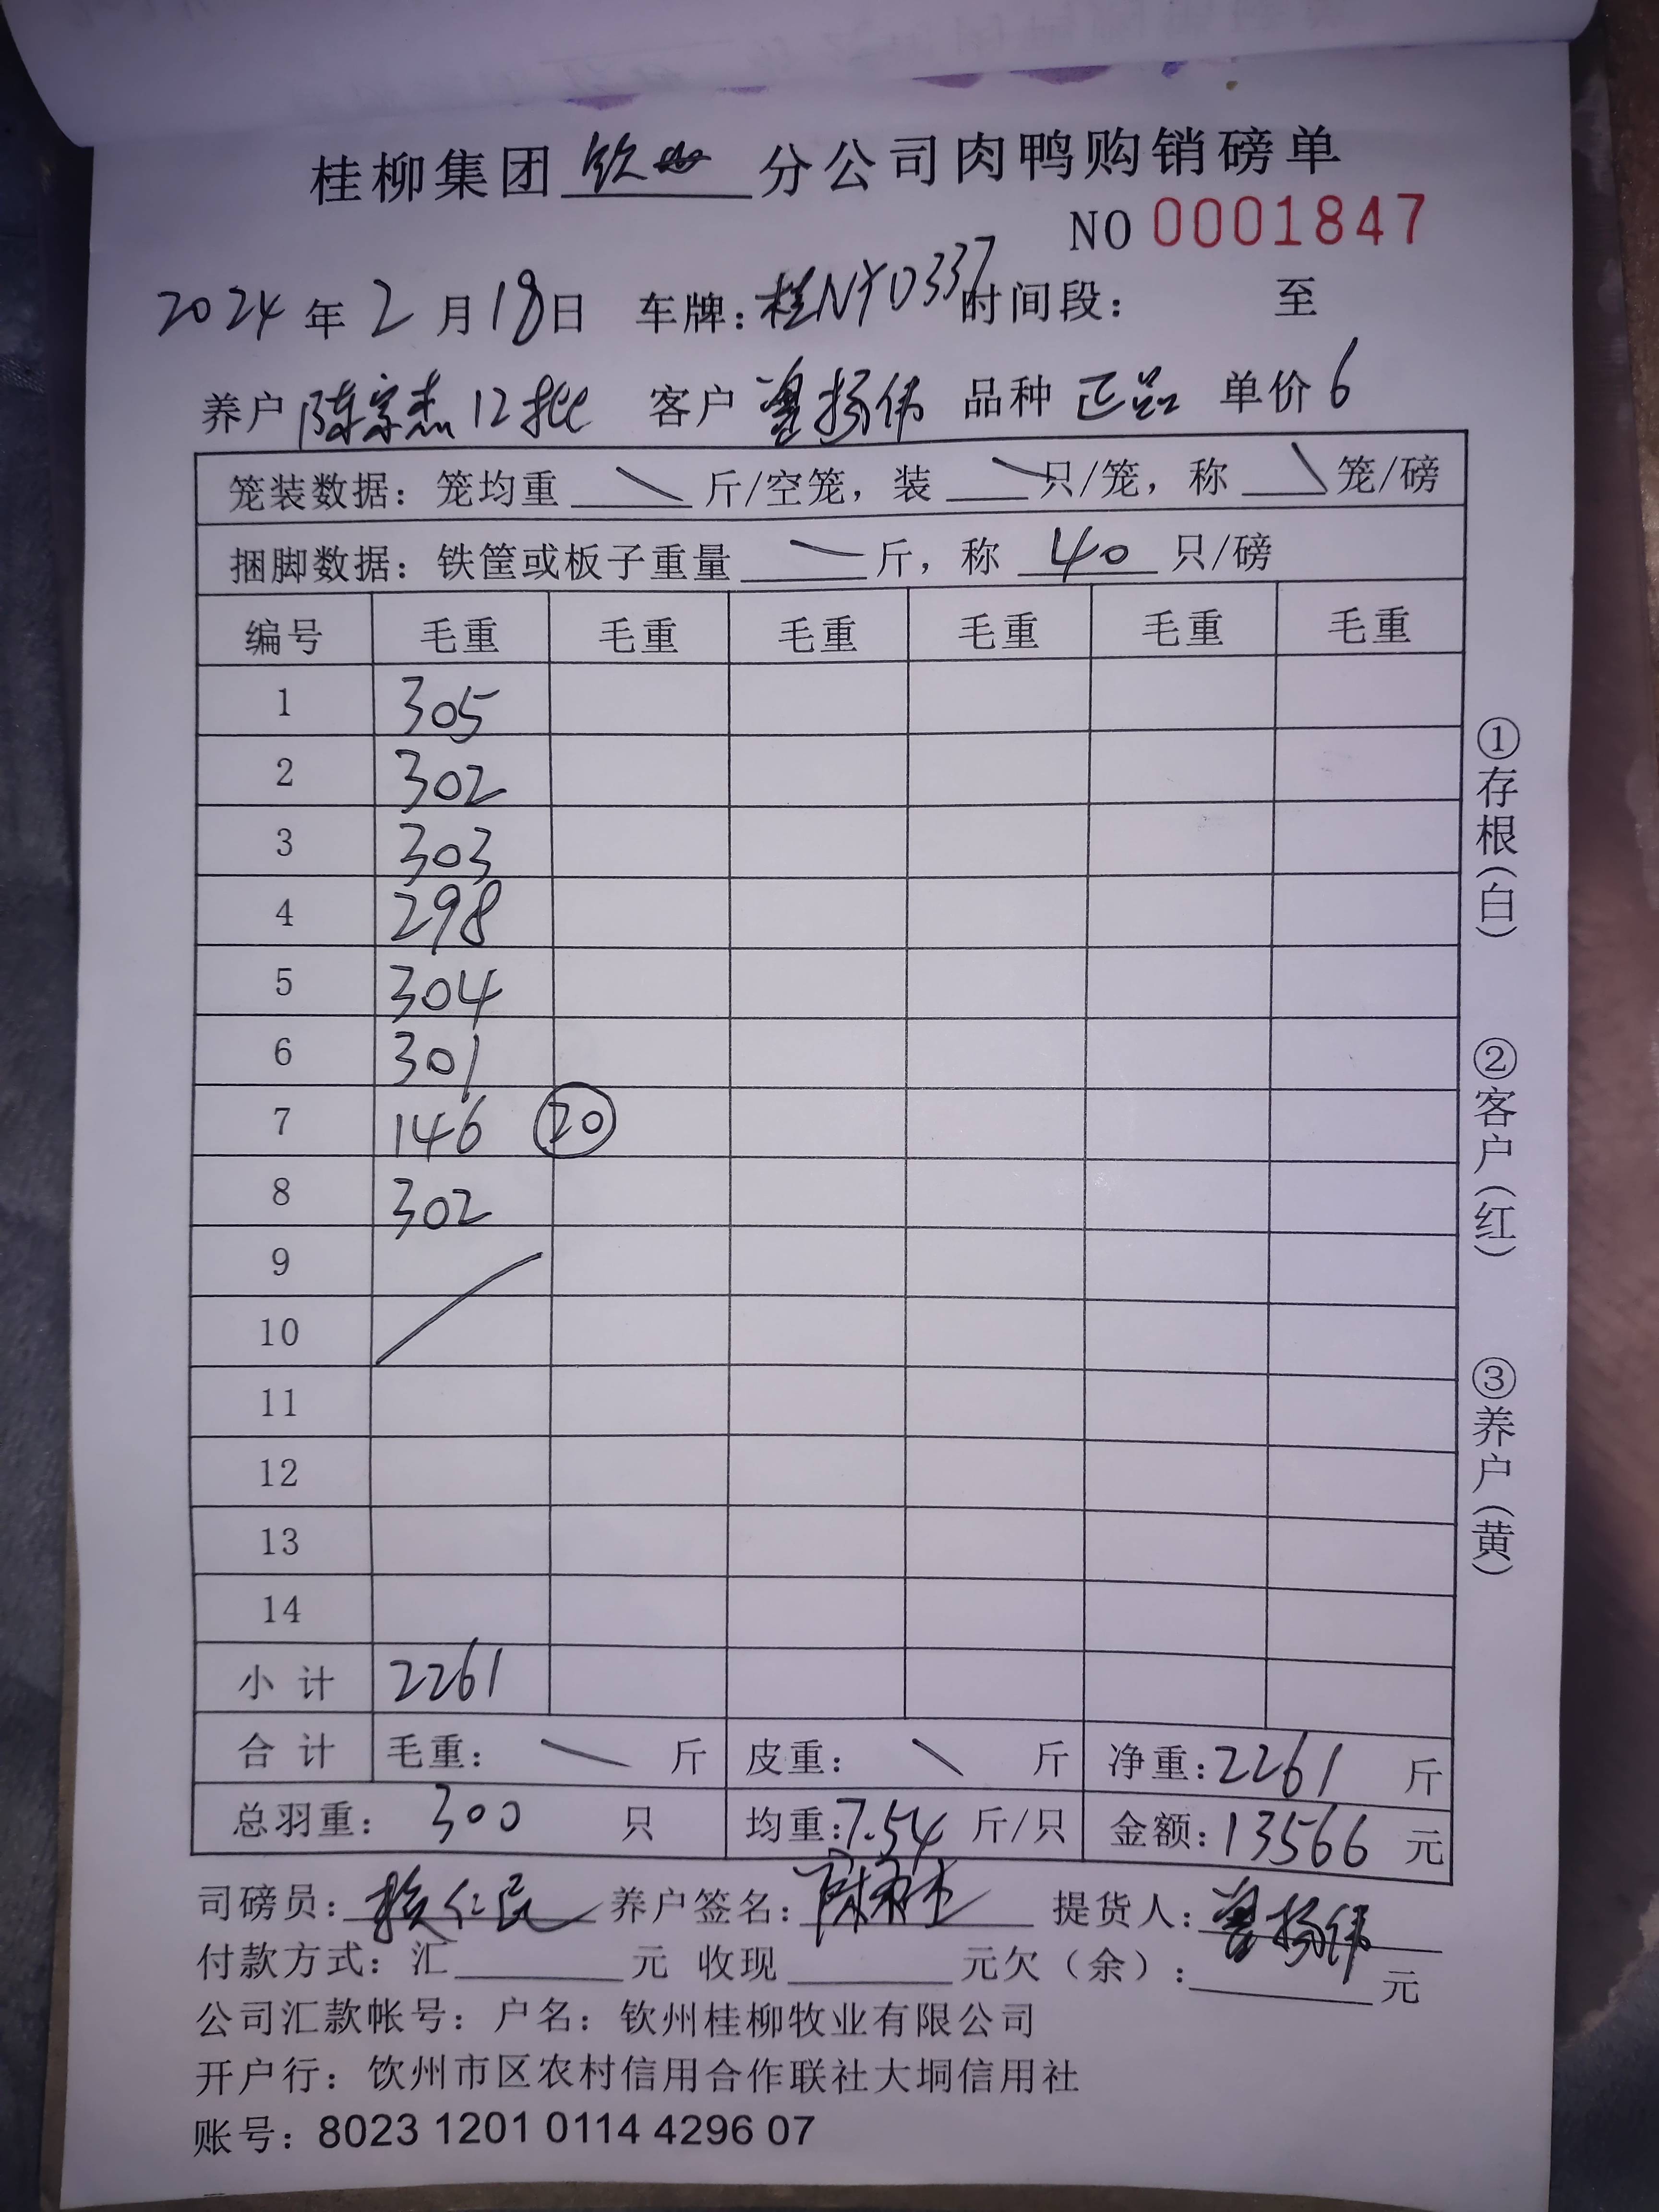 桂柳集团 钦州 分公司肉鸭购销磅单
NO 0001847
2024 年 2 月 18 日 车牌：桂NY0337 时间段： 至
养户 陈宗杰 12批 客户 扬伟 品种 正品 单价 6
笼装数据：笼均重 斤/空笼，装 只/笼，称 笼/磅
捆脚数据：铁筐或板子重量 斤，称 40 只/磅
编号 毛重 毛重 毛重 毛重 毛重 毛重
1 305
2 302
3 303
4 298
5 304
6 301
7 146 20
8 302
9
10
11
12
13
14
小 计 2261
合 计 毛重： 斤 皮重： 斤 净重：2261 斤
总羽重： 300 只 均重：7.54 斤/只 金额：13566 元
司磅员： 仁民 养户签名： 提货人： 扬伟
付款方式：汇 元 收现 元欠（余）： 元
公司汇款帐号：户名：钦州桂柳牧业有限公司
开户行：钦州市区农村信用合作联社大垌信用社
账号：8023 1201 0114 4296 07
①存根（白）
②客户（红）
③养户（黄）